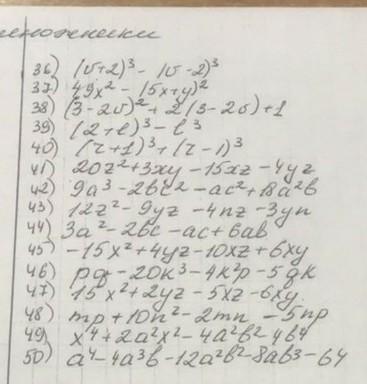 множители
36) (v+2)³ - (v-2)³
37) 49x² - (5x+y)²
38) (3-2v)² + 2(3-2v)+1
39) (2+l)³ - l³
40) (z+1)³+(z-1)³
41) 20z²+3xy-15xz-4yz
42) 9a³-2bc²-ac²+18a²b
43) 12z²-9yz-4nz-3yn
44) 3a²-2bc-ac+6ab
45) -15x²+4yz-10xz+6xy
46) pq-20k³-4k²p-5qk
47) 15x²+2yz-5xz-6xy.
48) mp+10n²-2mn-5np
49) x⁴+2a²x²-4a²b²-4b⁴
50) a⁴-4a³b-12a²b²-8ab³-64